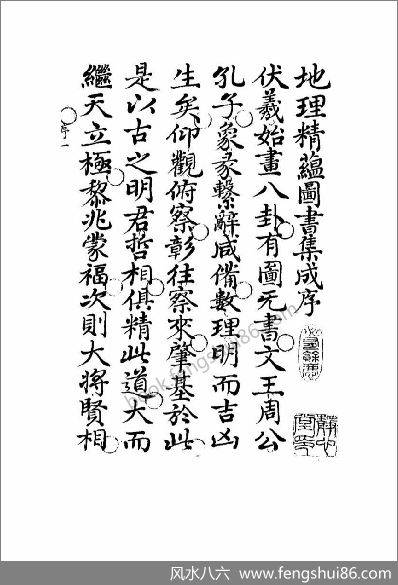 地理精蘊圖書集成序
伏羲始畫八卦有圖无書文王周公
孔子象彖繫辭咸備數理明而吉凶
生矣仰觀俯察彰往察來肇基於此
是以古之明君哲相俱精此道大而
繼天立極黎兆蒙福次則大將賢相
序一
book.fengshui86.com
风水八六 www.fengshui86.com